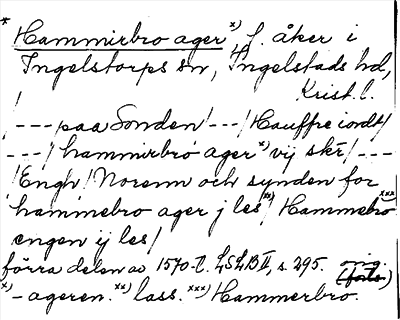 * Hammirbro ager x) f. åker i
Ingelstorps sn, Ingelstads hd,
Krist. l.
/---paa Sonden/---/Hauffre iordt/
---/hammirbro ager x) vij skr/---
/Engh/Norenn och synden for
hammebro ager j les xx)/Hammebro xxx)
engen ij les/
förra delen av 1570-t. LSLB II, s. 295. (forts.)
x) -ageren. xx) lass. xxx) Hammerbro.